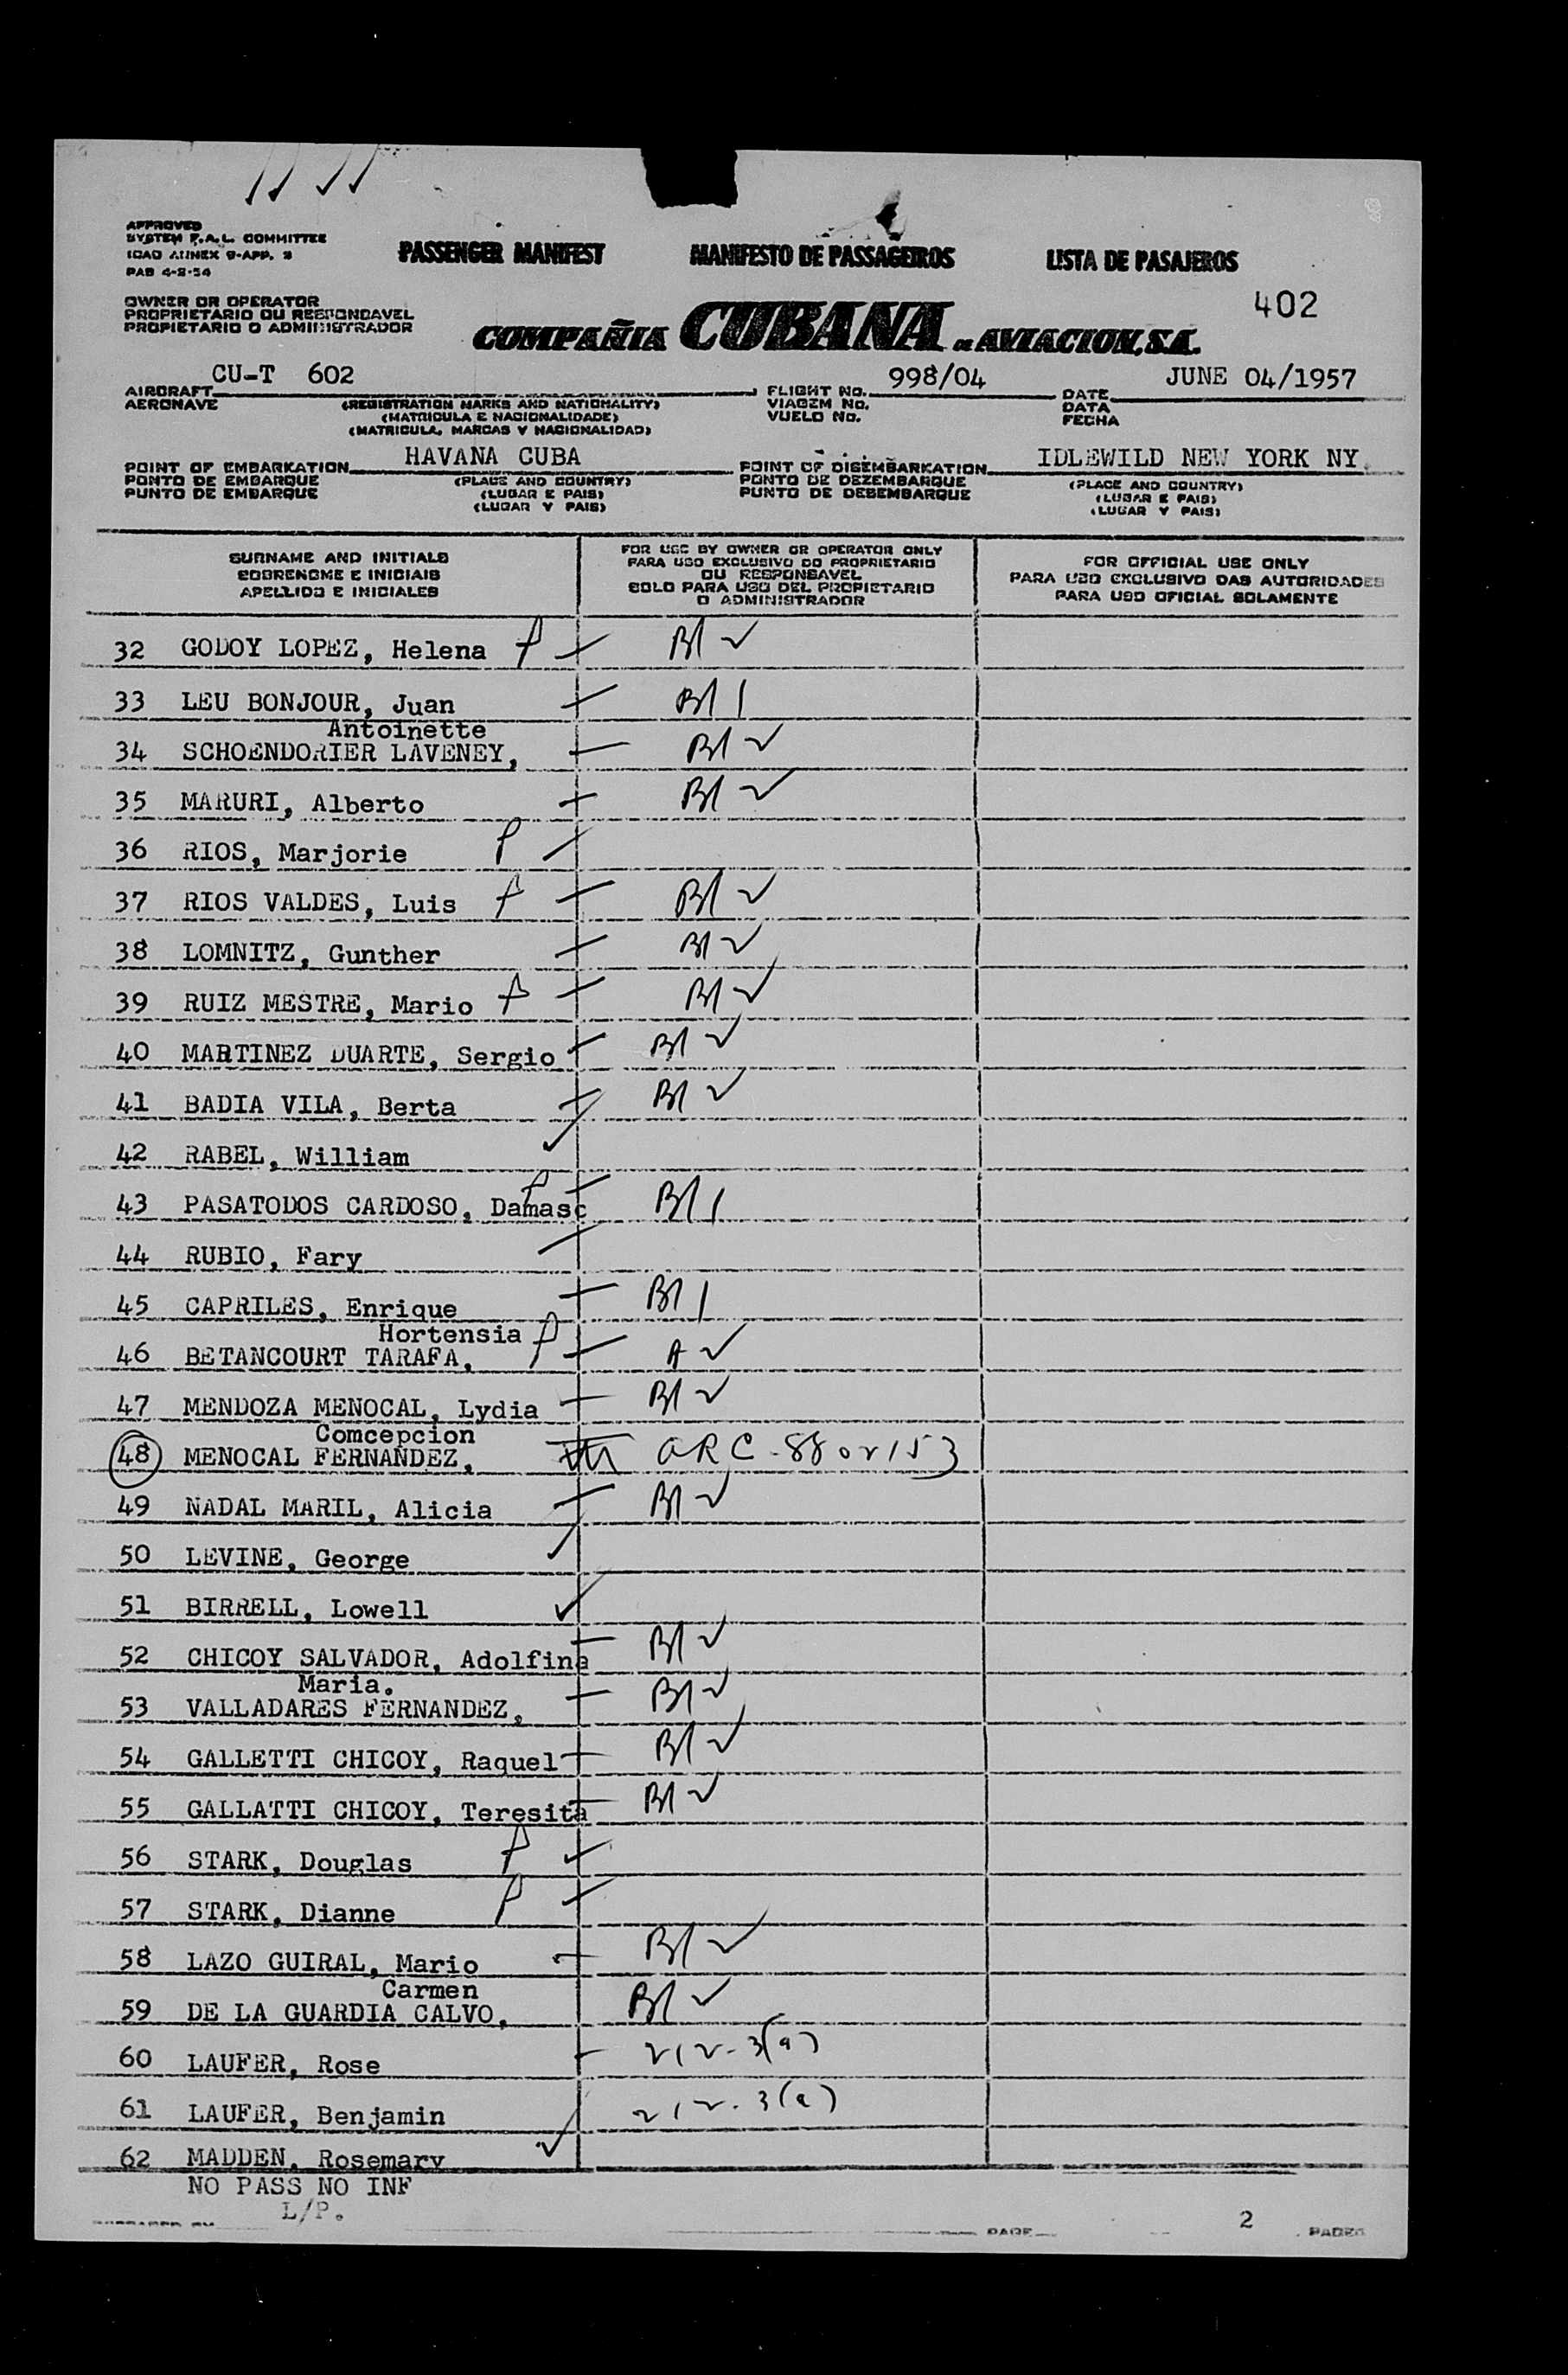 APPROVED
SYSTEM F.A.L. COMMITTEE
ICAO ANNEX 9-APP. 3
PAB 4-2-54
PASSENGER MANIFEST MANIFESTO DE PASSAGEIROS LISTA DE PASAJEROS
402
OWNER OR OPERATOR
PROPRIETARIO OU RESPONDAVEL
PROPIETARIO O ADMINISTRADOR
COMPAÑIA CUBANA DE AVIACION, S.A.
CU-T 602 998/04 JUNE 04/1957
AIRCRAFT FLIGHT No. DATE
AERONAVE (REGISTRATION MARKS AND NATIONALITY) VIAGEM No. DATA
(MATRICULA E NACIONALIDADE) VUELO No. FECHA
(MATRICULA, MARCAS Y NACIONALIDAD)
HAVANA CUBA IDLEWILD NEW YORK NY.
POINT OF EMBARKATION POINT OF DISEMBARKATION
PONTO DE EMBARQUE (PLACE AND COUNTRY) PONTO DE DEZEMBARQUE (PLACE AND COUNTRY)
PUNTO DE EMBARQUE (LUGAR E PAIS) PUNTO DE DESEMBARQUE (LUGAR E PAIS)
(LUGAR Y PAIS) (LUGAR Y PAIS)
SURNAME AND INITIALS
SOBRENOME E INICIAIS
APELLIDO E INICIALES
FOR USE BY OWNER OR OPERATOR ONLY
PARA USO EXCLUSIVO DO PROPRIETARIO
OU RESPONSAVEL
SOLO PARA USO DEL PROPIETARIO
O ADMINISTRADOR
FOR OFFICIAL USE ONLY
PARA USO EXCLUSIVO DAS AUTORIDADES
PARA USO OFICIAL SOLAMENTE
32 GODOY LOPEZ, Helena B1 2
33 LEU BONJOUR, Juan B1 1
Antoinette
34 SCHOENDORIER LAVENEY, B1 2
35 MARURI, Alberto B1 2
36 RIOS, Marjorie
37 RIOS VALDES, Luis B1 2
38 LOMNITZ, Gunther B1 2
39 RUIZ MESTRE, Mario B1 2
40 MARTINEZ DUARTE, Sergio B1 2
41 BADIA VILA, Berta B1 2
42 RABEL, William
43 PASATODOS CARDOSO, Damasc B1 1
44 RUBIO, Fary
45 CAPRILES, Enrique B1 1
Hortensia
46 BETANCOURT TARAFA, A 2
47 MENDOZA MENOCAL, Lydia B1 2
Comcepcion
48 MENOCAL FERNANDEZ, ARC-8802153
49 NADAL MARIL, Alicia B1 2
50 LEVINE, George
51 BIRRELL, Lowell
52 CHICOY SALVADOR, Adolfina B1 2
Maria.
53 VALLADARES FERNANDEZ, B1 2
54 GALLETTI CHICOY, Raquel B1 2
55 GALLATTI CHICOY, Teresita B1 2
56 STARK, Douglas
57 STARK, Dianne
58 LAZO GUIRAL, Mario B1 2
Carmen
59 DE LA GUARDIA CALVO, B1 2
60 LAUFER, Rose 212-3(a)
61 LAUFER, Benjamin 212-3(a)
62 MADDEN, Rosemary
NO PASS NO INF
L/P.
PAGE 2 PAGES